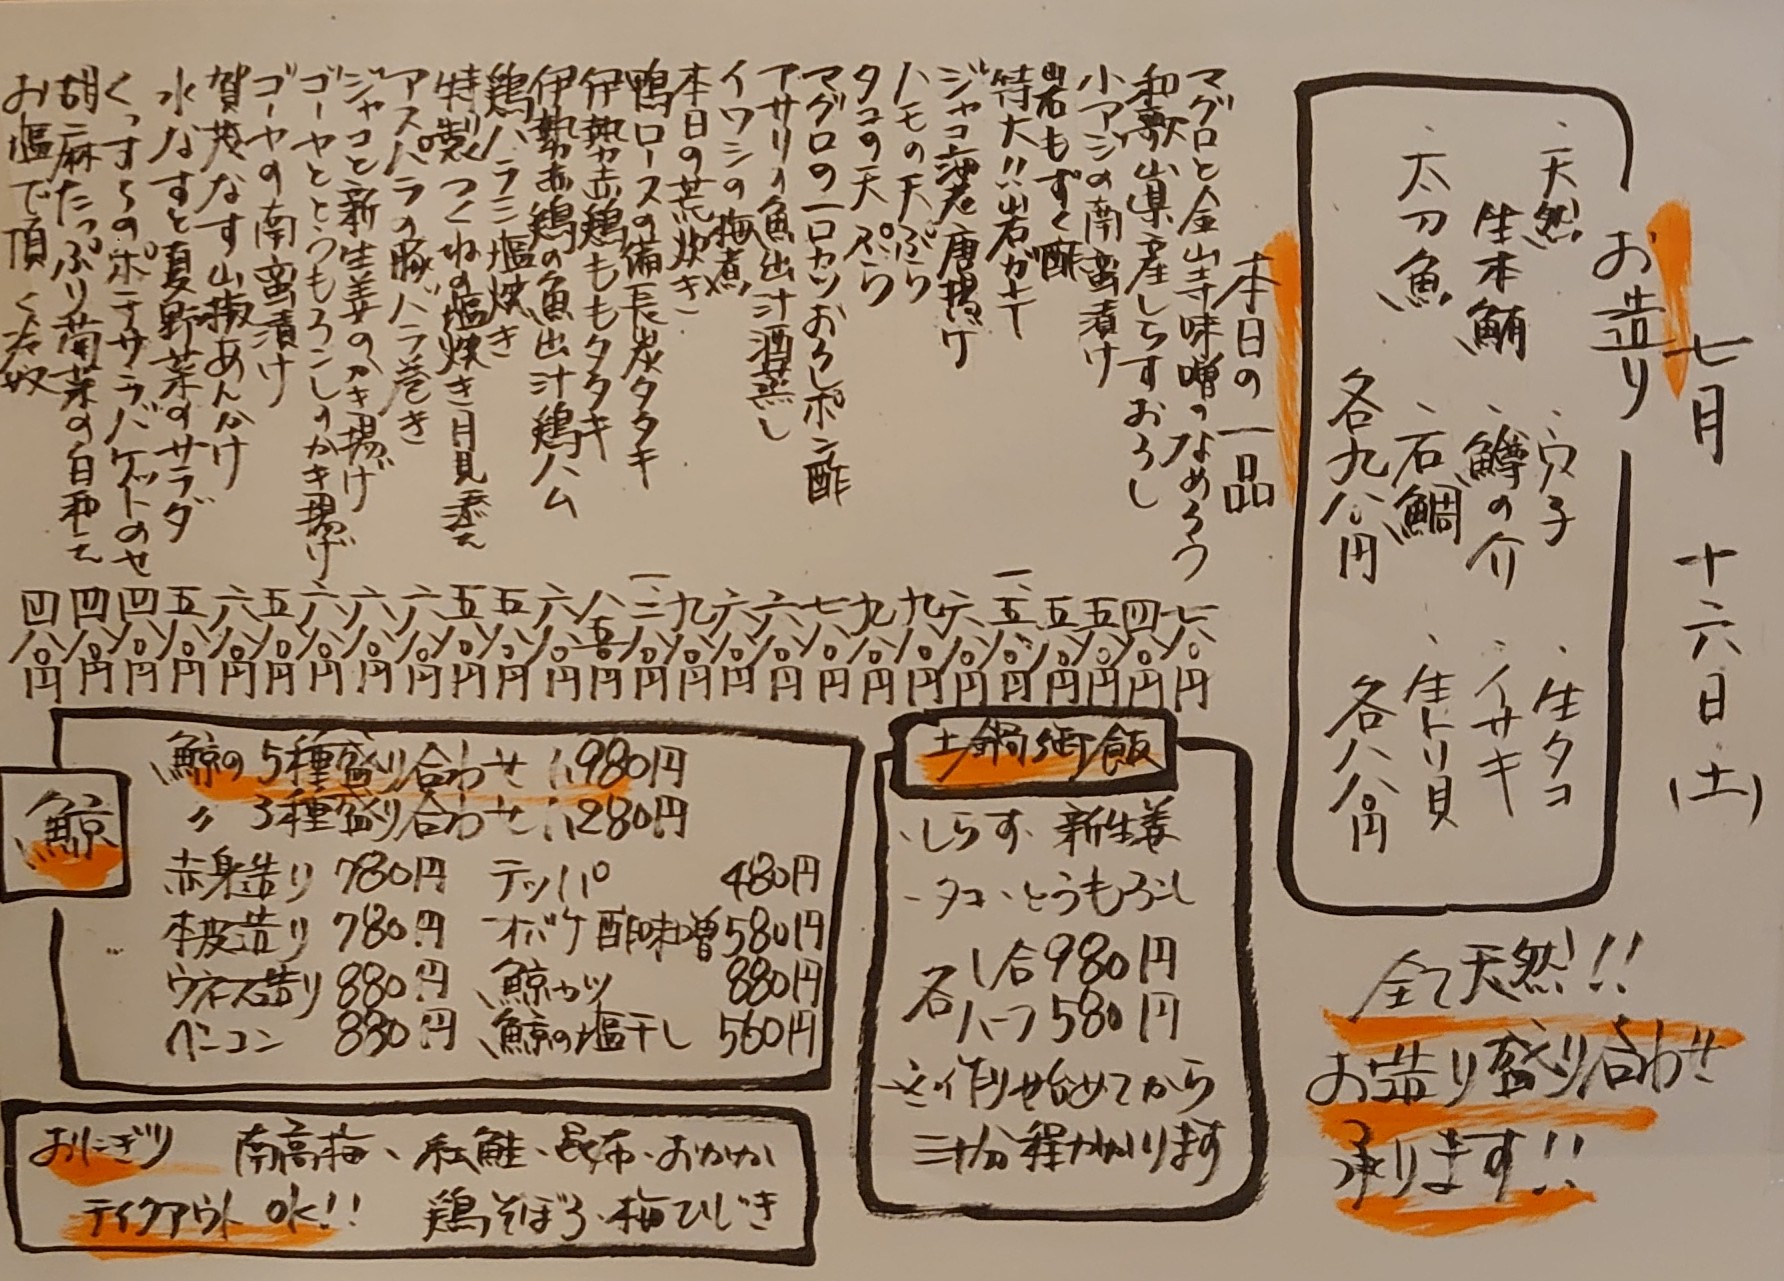 七月 十六日(土)
お造り
・天然 ・穴子 ・生タコ
生本鮪 ・鱒の介 ・イサキ
・太刀魚 ・石鯛 ・生トリ貝
各九八〇円 各八八〇円
全て天然!!
お造り盛り合わせ
承ります!!
本日の一品
マグロと金山寺味噌のなめろう 七八〇円
和歌山県産しらすおろし 四八〇円
小アジの南蛮漬け 五八〇円
岩もずく酢 五八〇円
特大!!岩ガキ 一、五八〇円
ジャコ海老唐揚げ 六八〇円
ハモの天ぷら 九八〇円
タコの天ぷら 九八〇円
マグロの一口カツおろしポン酢 七八〇円
アサリの魚出汁酒蒸し 六八〇円
イワシの梅煮 六八〇円
本日の荒炊き 九八〇円
鴨ロースの備長炭タタキ 一、二八〇円
伊勢赤鶏ももタタキ 八五〇円
伊勢赤鶏の魚出汁鶏ハム 六八〇円
鶏ハラミ塩焼き 五八〇円
特製つくねの塩焼き月見添え 五八〇円
アスパラの豚バラ巻き 六八〇円
ジャコと新生姜のかき揚げ 六八〇円
ゴーヤととうもろこしのかき揚げ 六八〇円
ゴーヤの南蛮漬け 五八〇円
賀茂なす山椒あんかけ 六八〇円
水なすと夏野菜のサラダ 五八〇円
くっすらのポテサラバケットのせ 四八〇円
胡麻たっぷり菊菜の白和え 四八〇円
お塩で頂く冷奴 四八〇円
土鍋御飯
・しらす・新生姜
・タコ・とうもろこし
各一合980円
各ハーフ580円
※作り始めてから
三十分程かかります
鯨
鯨の5種盛り合わせ 1,980円
〃 3種盛り合わせ 1,280円
赤身造り 780円 テッパ 480円
本皮造り 780円 オバケ酢味噌 580円
ウネス造り 880円 鯨カツ 880円
ベーコン 880円 鯨の塩干し 560円
おにぎり 南高梅、紅鮭、昆布、おかか
テイクアウトOK!! 鶏そぼろ、梅ひじき